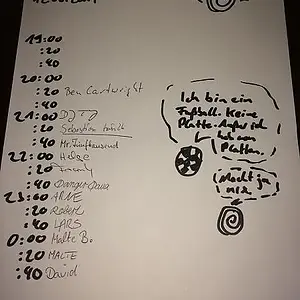 19:00
:20
:40
20:00
:20 Ben Cartwright
:40
21:00 DJ
:20 Sebastian
:40 Mr. Fünftausend
22:00 Helge
:20
:40 Danger
23:00 ARNE
:20 Robert
:40 LARS
0:00 Malte B.
:20 MALTE
:40 David
Ich bin ein
Fußball. Keine
Platte. Außer ich
hab nen
Platten.
Macht ja
nix.